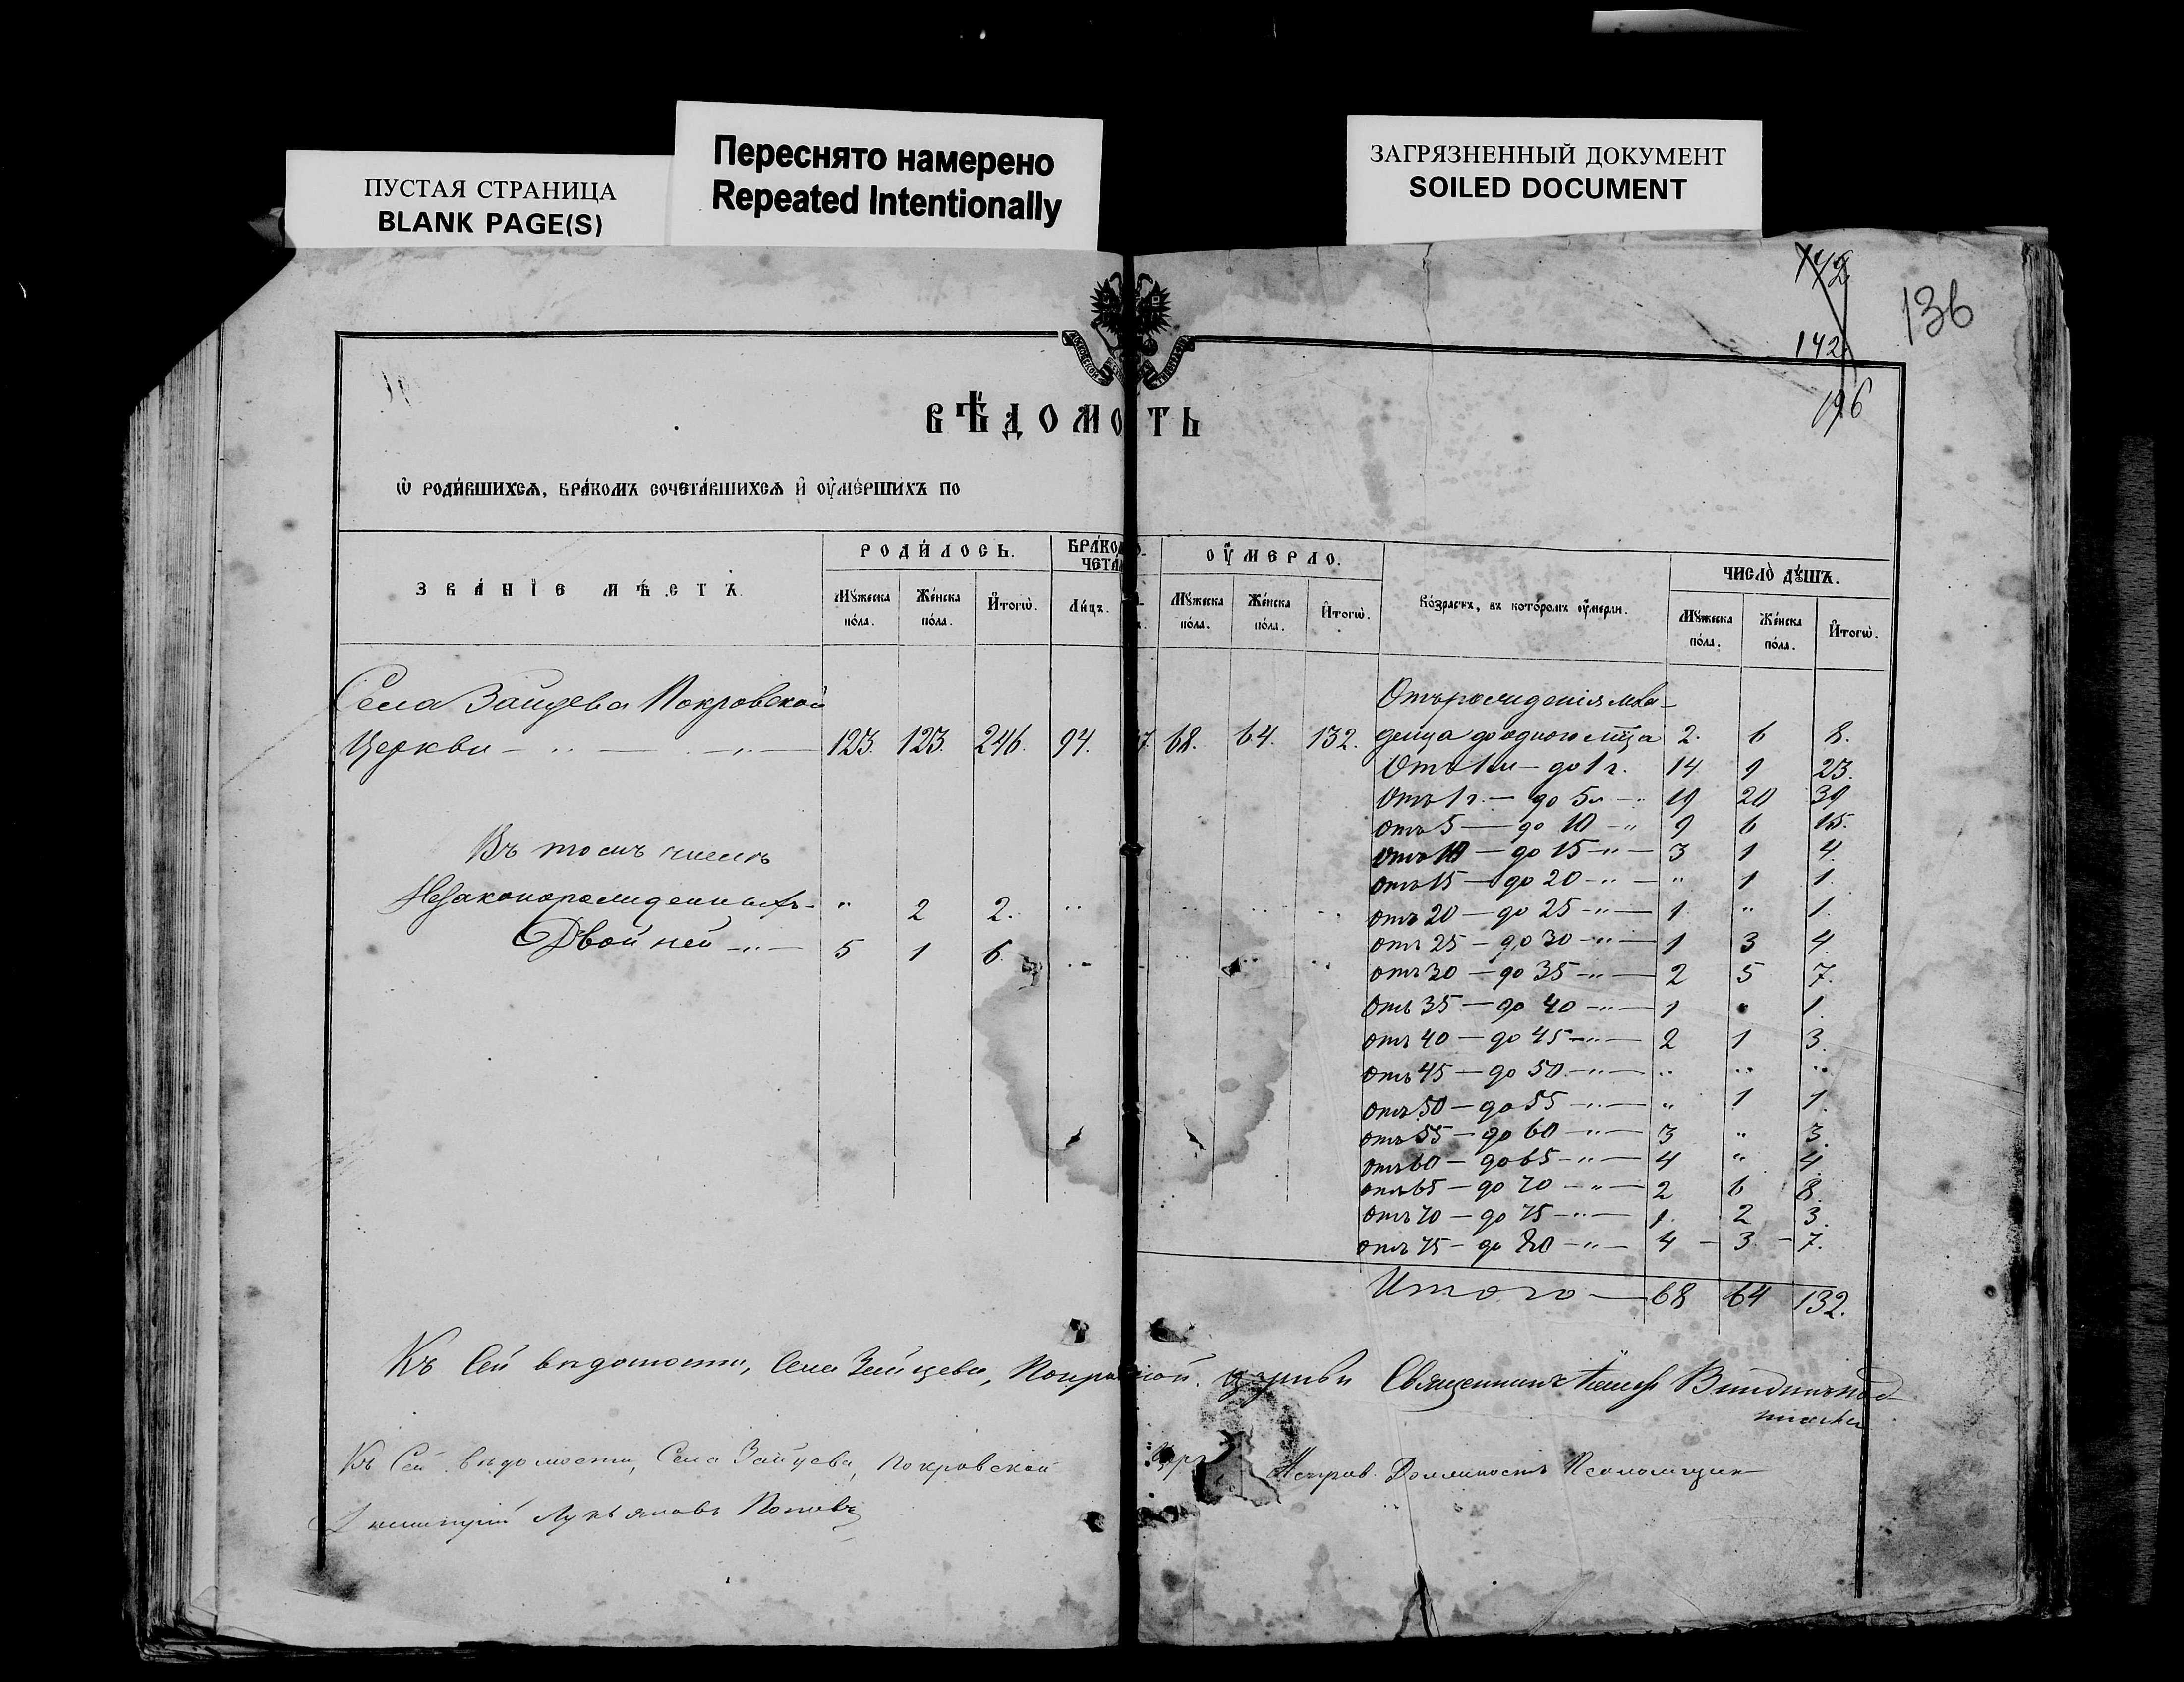 ПУСТАЯ СТРАНИЦА
BLANK PAGE(S)
Переснято намерено
Repeated Intentionally
ЗАГРЯЗНЕННЫЙ ДОКУМЕНТ
SOILED DOCUMENT
142
136
196
ВѢДОМО ТЬ
Ѡ РОДИ́ВШИХСѦ, БРА́КОМЪ СОЧЕТА́ВШИХСѦ И҆ ОУ҆МЕ́РШИХЪ ПО
ЗВА́НІЕ МѢ́СТЪ.
РОДИ́ЛОСЬ.
Мꙋ́жеска по́ла.
Же́нска по́ла.
И҆тогѡ̀.
БРА́КО
ЧЕТА́
Ли́цъ.
ОУ҆́МЕРЛО.
Мꙋ́жеска по́ла.
Же́нска по́ла.
И҆тогѡ̀.
Во́зрастъ, въ кото́ромъ оу҆́мерли.
ЧИСЛО̀ ДꙊ́ШЪ.
Мꙋ́жеска по́ла.
Же́нска по́ла.
И҆тогѡ̀.
Села Зайцева Покровской
Церкви — " — " — 123. 123. 246. 94. 7. 68. 64. 132.
Отъ рожденія мла-
денца до одного м҃ца 2. 6 8.
Отъ 1 м — до 1 г. 14 9 23.
Отъ 1 г. — до 5 л — " 19 20 39
отъ 5 — до 10 — " 9 6 15.
отъ 10 — до 15 — " — 3 1 4.
отъ 15 — до 20 — " — " 1 1.
отъ 20 — до 25 — " — 1 " 1.
отъ 25 — до 30 — " — 1 3 4.
отъ 30 — до 35 — " — 2 5 7.
отъ 35 — до 40 — " — 1 " 1.
отъ 40 — до 45 — " — 2 1 3.
отъ 45 — до 50 — " — " " "
отъ 50 — до 55 — " — " 1 1.
отъ 55 — до 60 — " — 3 " 3.
отъ 60 — до 65 — " — 4 " 4.
отъ 65 — до 70 — " — 2 6 8.
отъ 70 — до 75 — " — 1. 2 3.
отъ 75 — до 80 — " — 4 — 3 — 7.
Итого — 68 64 132.
Въ томъ числѣ
Незаконорожденныхъ — " 2 2. "
Двойней — " — 5 1 6. "
Къ сей вѣдомости, Села Зайцева, Покровской церкви Священникъ
Къ Сей вѣдомости, Села Зайцева, Покровской Исправ. Должность Псаломщик
Лукьяновъ Поповъ